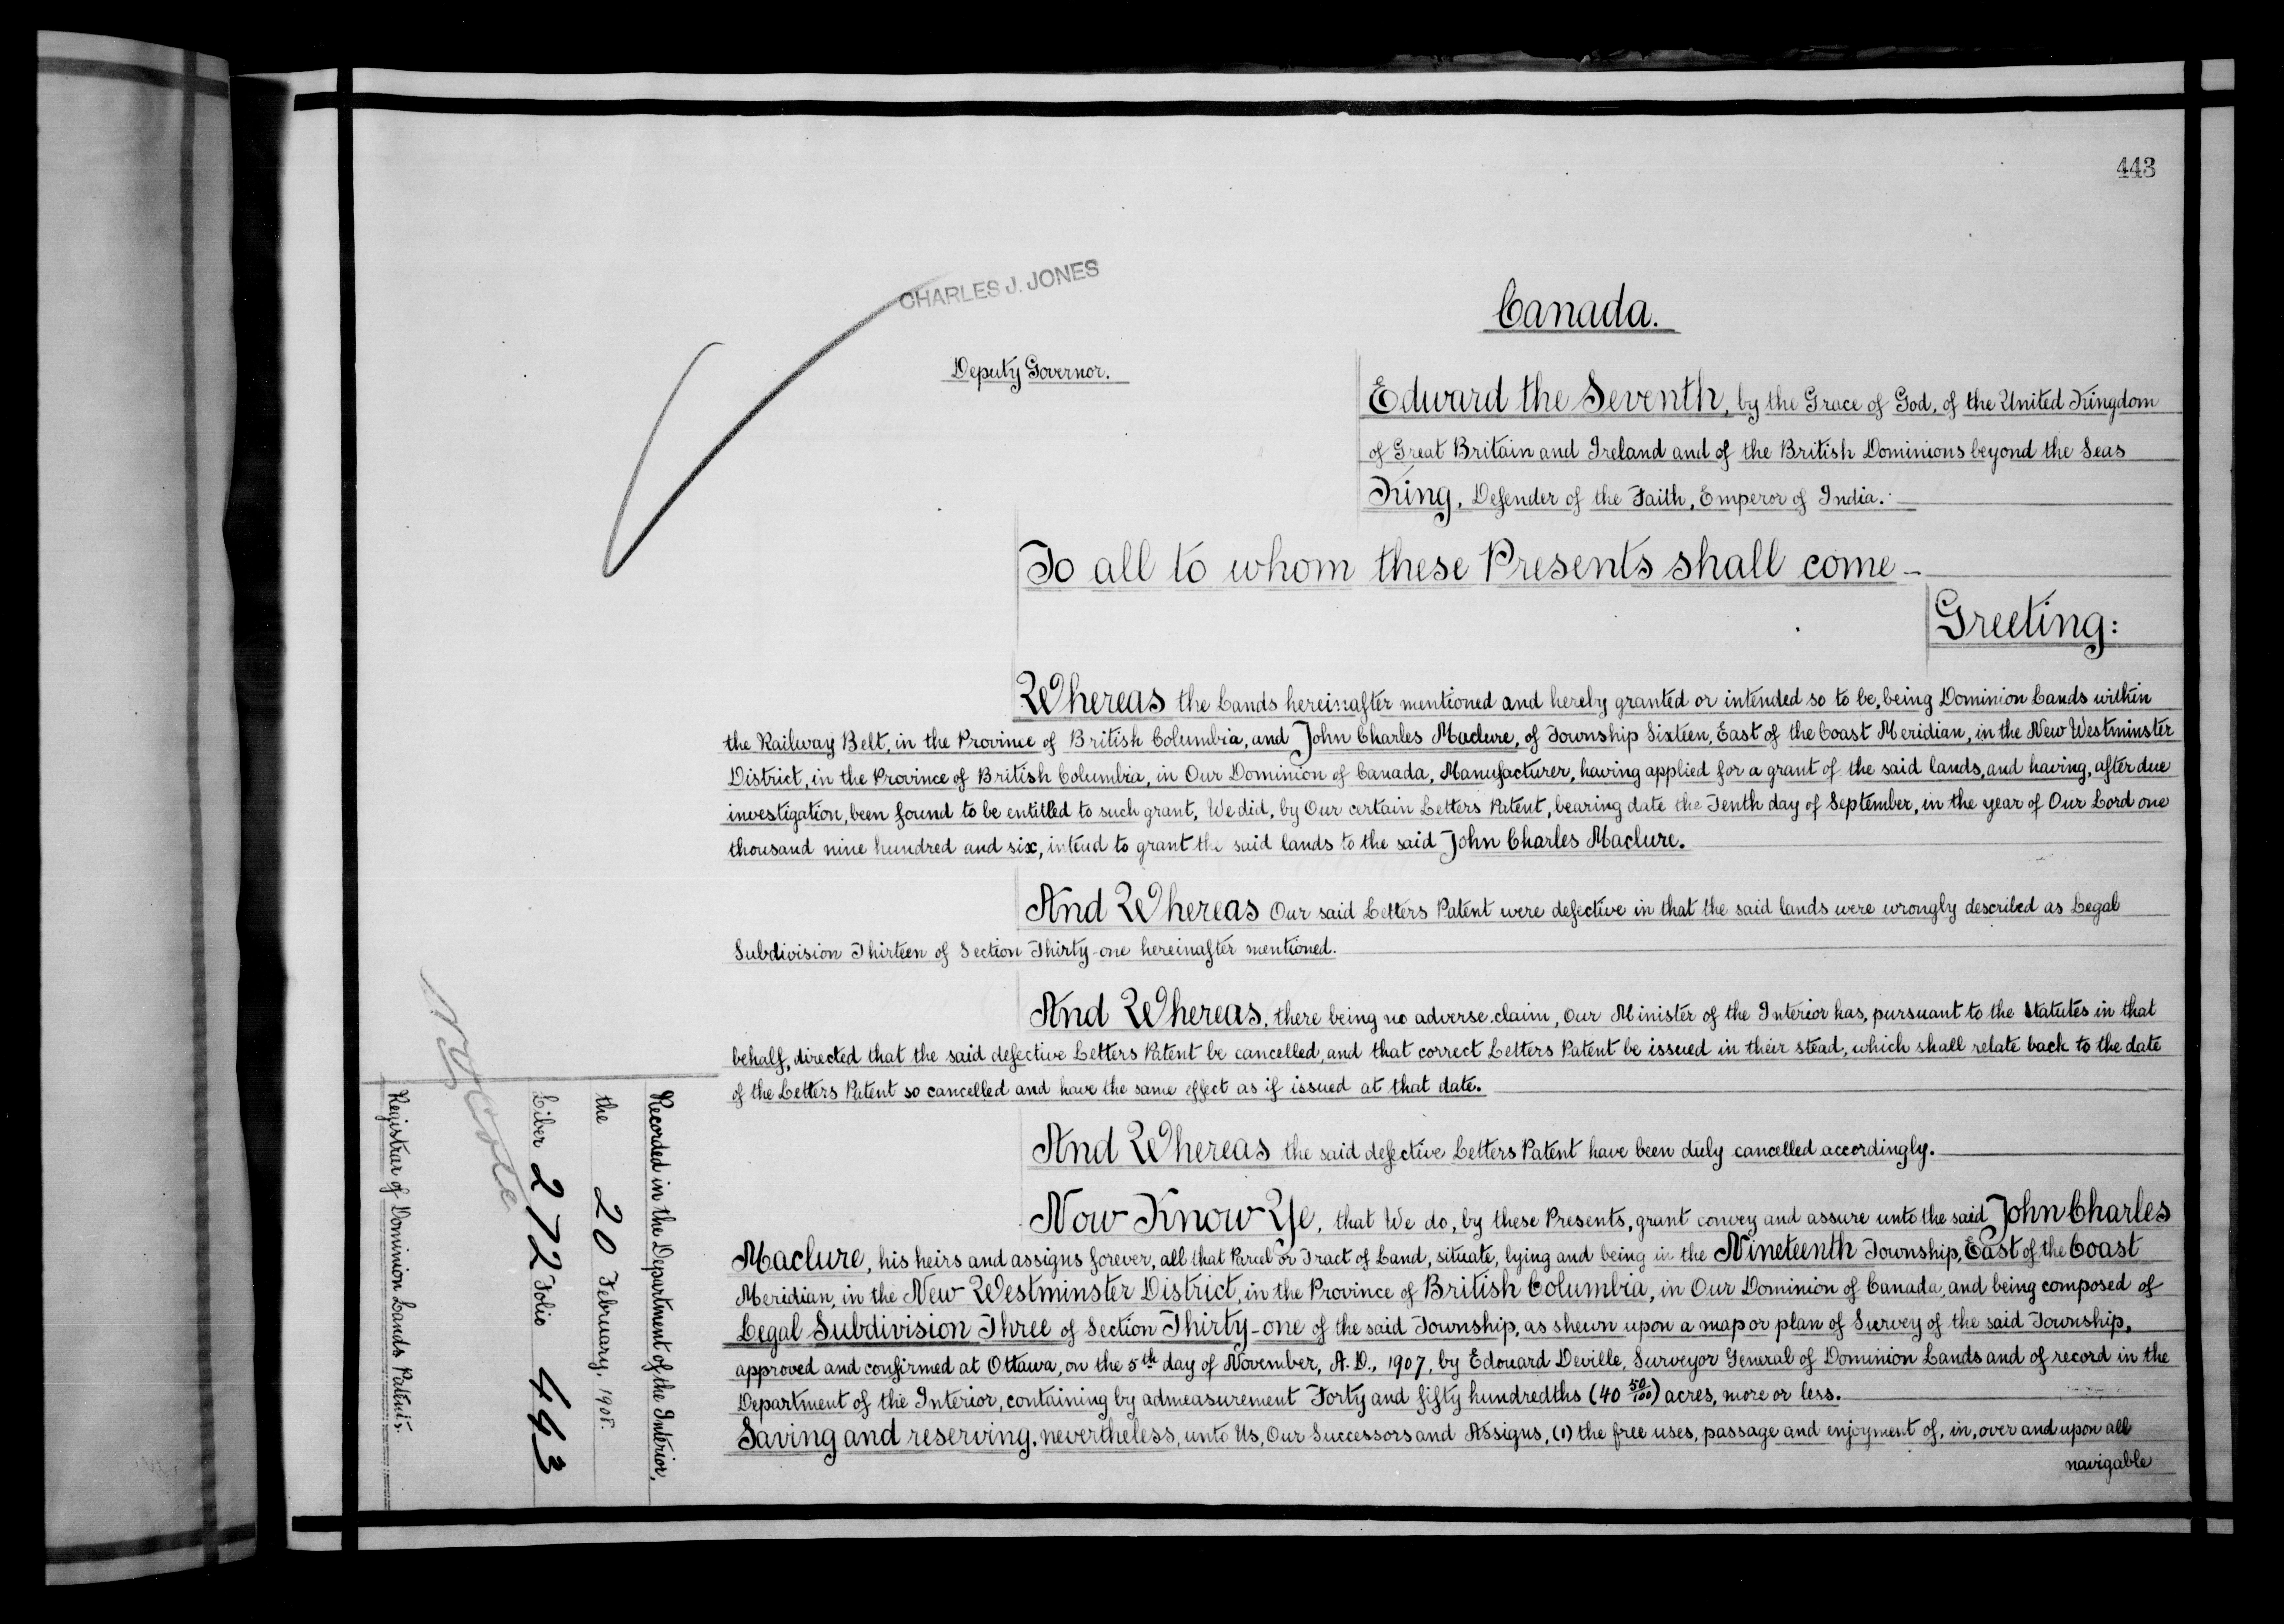 443
CHARLES J. JONES
Canada.
Deputy Governor.
Edward the Seventh, by the Grace of God, of the United Kingdom
of Great Britain and Ireland and of the British Dominions beyond the Seas
King, Defender of the Faith, Emperor of India.
To all to whom these Presents shall come -
Greeting:
Whereas the Lands hereinafter mentioned and hereby granted or intended so to be, being Dominion Lands within
the Railway Belt, in the Province of British Columbia, and John Charles Maclure, of Township Sixteen, East of the Coast Meridian, in the New Westminster
District, in the Province of British Columbia, in Our Dominion of Canada, Manufacturer, having applied for a grant of the said lands, and having, after due
investigation, been found to be entitled to such grant, We did, by Our certain Letters Patent, bearing date the Tenth day of September, in the year of Our Lord one
thousand nine hundred and six, intend to grant the said lands to the said John Charles Maclure.
And Whereas Our said Letters Patent were defective in that the said lands were wrongly described as Legal
Subdivision Thirteen of Section Thirty-one hereinafter mentioned.
And Whereas, there being no adverse claim, Our Minister of the Interior has, pursuant to the Statutes in that
behalf, directed that the said defective Letters Patent be cancelled, and that correct Letters Patent be issued in their stead, which shall relate back to the date
of the Letters Patent so cancelled and have the same effect as if issued at that date.
And Whereas the said defective Letters Patent have been duly cancelled accordingly.
Now Know Ye, that We do, by these Presents, grant convey and assure unto the said John Charles
Maclure, his heirs and assigns forever, all that Parcel or Tract of Land, situate, lying and being in the Nineteenth Township, East of the Coast
Meridian, in the New Westminster District, in the Province of British Columbia, in Our Dominion of Canada, and being composed of
Legal Subdivision Three of Section Thirty-one of the said Township, as shewn upon a map or plan of Survey of the said Township,
approved and confirmed at Ottawa, on the 5th day of November, A.D., 1907, by Edouard Deville, Surveyor General of Dominion Lands and of record in the
Department of the Interior, containing by admeasurement Forty and fifty hundredths (40 50/100) acres, more or less.
Saving and reserving, nevertheless, unto Us, Our Successors and Assigns, (1) the free uses, passage and enjoyment of, in, over and upon all
navigable
Recorded in the Department of the Interior,
the 20 February, 1908.
Liber 272 Folio 443
Registrar of Dominion Lands Patents.